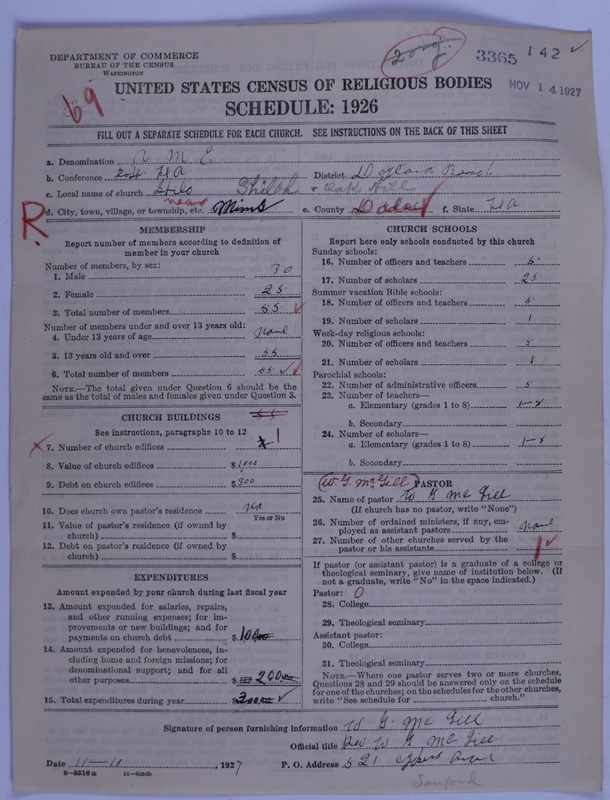 DEPARTMENT OF COMMERCE
BUREAU OF THE CENSUS
WASHINGTON
3365 142 ✓
NOV 14 1927
69
UNITED STATES CENSUS OF RELIGIOUS BODIES
SCHEDULE: 1926
FILL OUT A SEPARATE SCHEDULE FOR EACH CHURCH. SEE INSTRUCTIONS ON THE BACK OF THIS SHEET
a. Denomination A M E
b. Conference East FLA District
c. Local name of church Shilo Shiloh + Oak Hill
R
d. City, town, village, or township, etc. near Mims e. County Dade f. State FLA
MEMBERSHIP
Report number of members according to definition of
member in your church
Number of members, by sex:
1. Male 30
2. Female 25
3. Total number of members 55 ✓
Number of members under and over 13 years old:
4. Under 13 years of age none
5. 13 years old and over 55
6. Total number of members 55 ✓✓
NOTE.—The total given under Question 6 should be the
same as the total of males and females given under Question 3.
CHURCH BUILDINGS 55
See instructions, paragraphs 10 to 12
X 7. Number of church edifices 1
8. Value of church edifices $1,000
9. Debt on church edifices $300
10. Does church own pastor's residence? No
Yes or No
11. Value of pastor's residence (if owned by
church) $
12. Debt on pastor's residence (if owned by
church) $
EXPENDITURES
Amount expended by your church during last fiscal year
13. Amount expended for salaries, repairs,
and other running expenses; for im-
provements or new buildings; and for
payments on church debt $100.00
14. Amount expended for benevolences, in-
cluding home and foreign missions; for
denominational support; and for all
other purposes $200.00
15. Total expenditures during year $300.00 ✓
CHURCH SCHOOLS
Report here only schools conducted by this church
Sunday schools:
16. Number of officers and teachers 5
17. Number of scholars 25
Summer vacation Bible schools:
18. Number of officers and teachers 5
19. Number of scholars 1
Week-day religious schools:
20. Number of officers and teachers 5
21. Number of scholars 1
Parochial schools:
22. Number of administrative officers 5
23. Number of teachers—
a. Elementary (grades 1 to 8) 1-8
b. Secondary
24. Number of scholars—
a. Elementary (grades 1 to 8) 1-8
b. Secondary
(W. G. McGill) PASTOR
25. Name of pastor W G McGill
(If church has no pastor, write "None")
26. Number of ordained ministers, if any, em-
ployed as assistant pastors none
27. Number of other churches served by the
pastor or his assistants 1 ✓
If pastor (or assistant pastor) is a graduate of a college or
theological seminary, give name of institution below. (If
not a graduate, write "No" in the space indicated.)
Pastor: O
28. College
29. Theological seminary
Assistant pastor:
30. College
31. Theological seminary
NOTE.—Where one pastor serves two or more churches,
Questions 28 and 29 should be answered only on the schedule
for one of the churches; on the schedules for the other churches,
write "See schedule for church."
Signature of person furnishing information W G McGill
Official title Rev W G McGill
Date 11-10, 1927 P. O. Address 521
8-5518a
Sanford